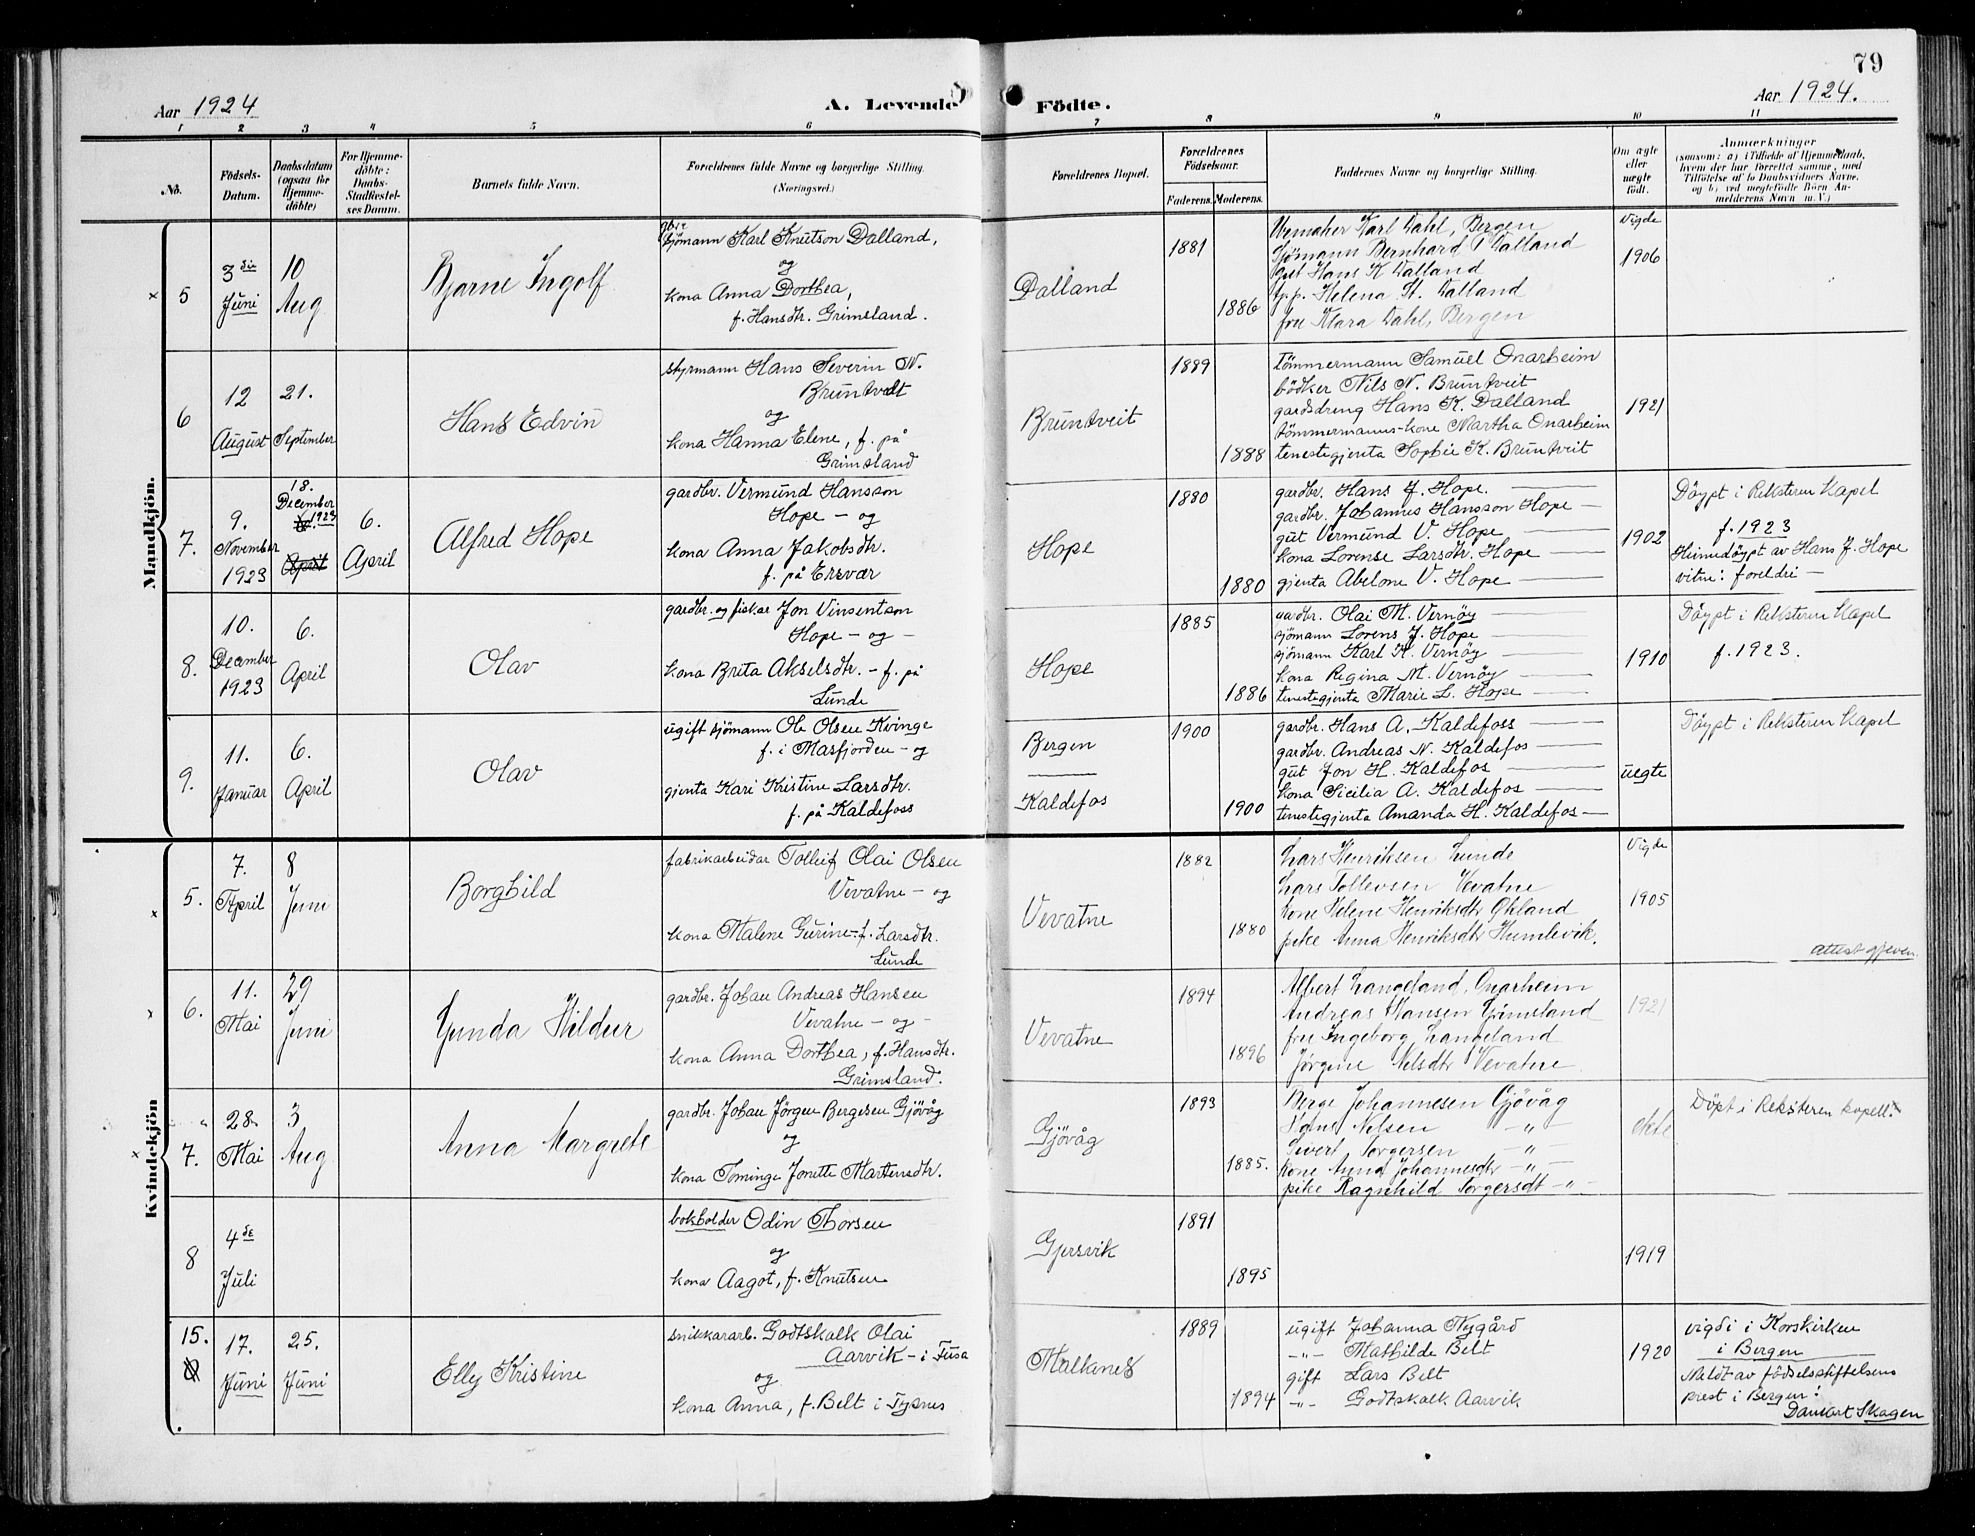 79
Aar 1924
A. Levende Födte.
Aar 1924.
1 2 3 4 5 6 7 8 9 10 11
No.
Födsels-Datum.
Daabsdatum (ogsaa for Hjemme-döbte)
For Hjemme-döbte: Daabs-Stadfæstelses Datum.
Barnets fulde Navn.
Forældrenes fulde Navne og borgerlige Stilling. (Næringsvei.)
Forældrenes Bopæl.
Forældrenes Födselsaar.
Faderens. Moderens.
Faddernes Navne og borgerlige Stilling.
Om ægte eller uægte födt.
Anmærkninger
(saasom: a) i Tilfælde af Hjemmedaab, hvem der har forrettet samme, med Tilföielse af to Daabsvidners Navne, og b) ved uægtefödte Börn Anmelderens Navn m. V.)
Mandkjön.
5
3die Juni
10 Aug
Bjarne Ingolf
sjömann Karl Knutson Dalland,
og
kona Anna Dorthea,
f. Hansdtr. Grimsland.
Dalland
1881
1886
Urmaker Karl Dahl, Bergen
Sjömann Bernhard Dalland
Gut Hans K Dalland
Helena St. Dalland
fru Klara Dahl, Bergen
Vigde
1906
6
12 August
21. September
Hans Edvin
styrmann Hans Severin N.
Bruntveit
og
kona Hanna Elene, f. på
Grimsland
Bruntveit
1889
1888
tömmermann Samuel Onarheim
bödker Nils N. Bruntveit
gardsdreng Hans K. Dalland
tömmermanns-kone Martha Onarheim
tenestegjenta Sophie K. Bruntveit
1921
7.
9. November 1923
18. December 1923
April
6. April
Alfred Hope
gardbr. Vermund Hansson
Hope - og
kona Anna Jakobsdtr.
f. på Ersvær
Hope
1880
1880
gardbr. Hans J. Hope.
gardbr. Johannes Hansson Hope -
gut Vermund V. Hope
kona Lorense Larsdtr. Hope
gjenta Abelone V. Hope
1902
Döypt i Reksteren Kapel
f. 1923
Heimedöypt av Hans J. Hope
vitne: foreldri -
8.
10. December 1923
6. April
Olav
gardbr. og fiskar Jon Vinsentson
Hope - og -
kona Brita Akselsdtr. - f. på
Lunde
Hope
1885
1886
gardbr. Olai M. Vernöy
sjömann Lorens J. Hope
sjömann Karl K. Vernöy
kona Regina M. Vernöy
tenestegjenta Marie L. Hope
1910
Döypt i Reksteren Kapel
f. 1923.
9.
11. Januar
6. April
Olav
ugift sjömann Ole Olsen Kvinge
f. i Masfjorden - og
gjenta Kari Kristine Larsdtr.
f. på Kaldefoss
Bergen
Kaldefos
1900
1900
gardbr. Hans A. Kaldefoss
gardbr. Andreas N. Kaldefos
gut Jon H. Kaldefos
kona Sicilia A. Kaldefos
tenestegjenta Amanda H. Kaldefos -
uegte
Döypt i Reksteren Kapel
Kvindekjön
5.
7. April
8 Juni
Borghild
fabrikarbeidar Tolleif Olai Olsen
Vevatne - og
kona Malene Gurine - f. Larsdtr.
Lunde
Vevatne
1882
1880
Lars Henriksen Lunde
Lars Tollevsen Vevatne
kone Helene Henriksdtr Økland
pike Anna Henriksdtr Humlevik.
Vigde
1905
attest gjeven.
6.
11. Mai
29 Juni
Gunda Hildur
gardbr. Johan Andreas Hansen
Vevatne - og -
kona Anna Dorthea, f. Hansdtr.
Grimsland.
Vevatne
1894
1896
Albert Langeland, Onarheim
Andreas Hansen Grimsland
fru Ingeborg Langeland
Jørgine Nelsdtr Vevatne
1921
7.
28 Mai
3 Aug
Anna Margrete
gardbr. Johan Jörgen Bergesen Gjövåg
og
kona Tominge Jonette Martensdtr.
Gjövåg
1893
1885.
Berge Johannesen Gjövåg
Hans Nelsen -"-
Sivert Torgersen -"-
kone Anna Johannesdtr -"-
pike Ragnhild Torgersdt -"-
ekte
Döpt i Reksteren kapell.
8
4de Juli
bokholder Odin Thorsen
og
kona Aagot, f. Knutsen
Gjersvik
1891
1895
1919
15.
17. Juni
25. Juni
Elly Kristine
snikkararb. Godtskalk Olai
Aarvik - i Fusa
og
kona Anna, f. Belt i Tysnes
Malkanes
1889
1894
ugift Johanna Nygård
-"- Mathilde Belt
gift Lars Belt
-"- Godtskalk Aarvik
1920
vigdi i Korskirken
i Bergen
Meldt av födselsstiftelsens
prest i Bergen:
Danbart Skagen